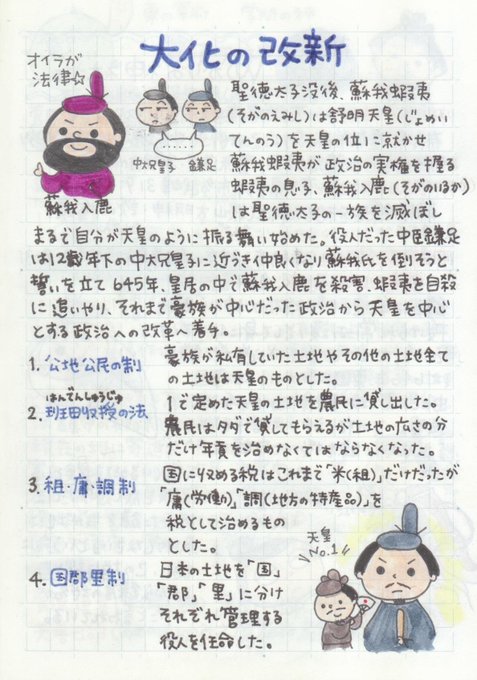 大化の改新
オイラが
法律☆
蘇我入鹿
中大兄皇子 鎌足
聖徳太子没後、蘇我蝦夷
(そがのえみし)は舒明天皇(じょめい
てんのう)を天皇の位に就かせ
蘇我蝦夷が政治の実権を握る
蝦夷の息子、蘇我入鹿(そがのいるか)
は聖徳太子の一族を滅ぼし
まるで自分が天皇のように振る舞い始めた。役人だった中臣鎌足
は12歳年下の中大兄皇子に近づき仲良くなり蘇我氏を倒そうと
誓いを立て645年、皇居の中で蘇我入鹿を殺害、蝦夷を自殺
に追いやり、それまで豪族が中心だった政治から天皇を中心
とする政治への改革へ着手。
1. 公地公民の制
豪族が私有していた土地やその他の土地全て
の土地は天皇のものとした。
はんでんしゅうじゅ
2. 班田収授の法
1で定めた天皇の土地を農民に貸し出した。
農民はタダで貸してもらえるが土地の広さの分
だけ年貢を治めなくてはならなくなった。
3. 祖・庸・調制
国に収める税はこれまで「米(祖)」だけだったが
「庸(労働)」「調(地方の特産品)」を
税として治めるもの
とした。
4. 国郡里制
日本の土地を「国」
「郡」「里」に分け
それぞれ管理する
役人を任命した。
天皇
No.1